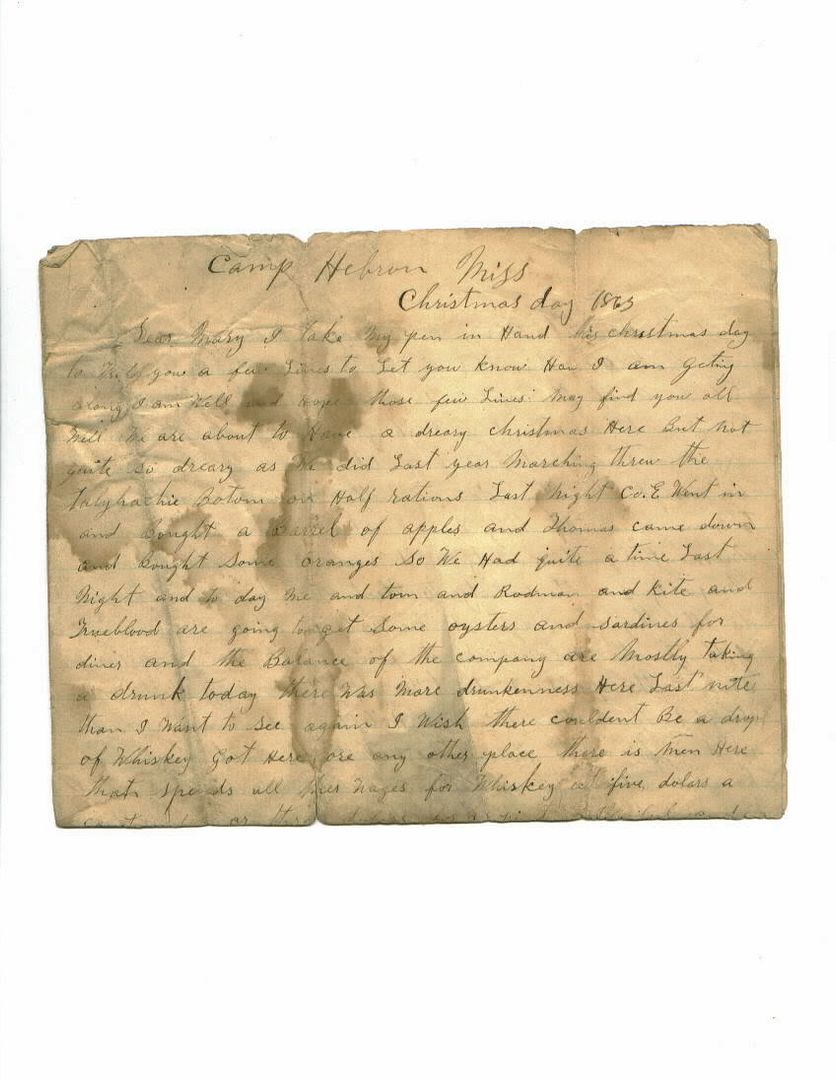 Camp Hebron Miss
Christmas day 1863
Dear Mary I take My pen in Hand this christmas day
to Write you a few Lines to Let you know How I am Geting
along I am Well and Hope those few Lines May find you all
Well We are about to Have a dreary christmas Here But not
quite so dreary as We did Last year Marching threw the
talyhachie Botom on Half rations Last Night Co. E Went in
and Bought a Barrel of apples and Thomas came down
and Bought Some oranges So We Had quite a time Last
Night and to day Me and tom and Rodman and Kite and
Trueblood are going to get Some oysters and Sardines for
diner and the Balance of the company are Mostly taking
a drunk today there Was More drunkenness Here Last nite
than I Want to See again I Wish there couldent Be a drop
of Whiskey Got Here ore any other place there is Men Here
that spends all ther Wages for Whiskey at five dolars a
or